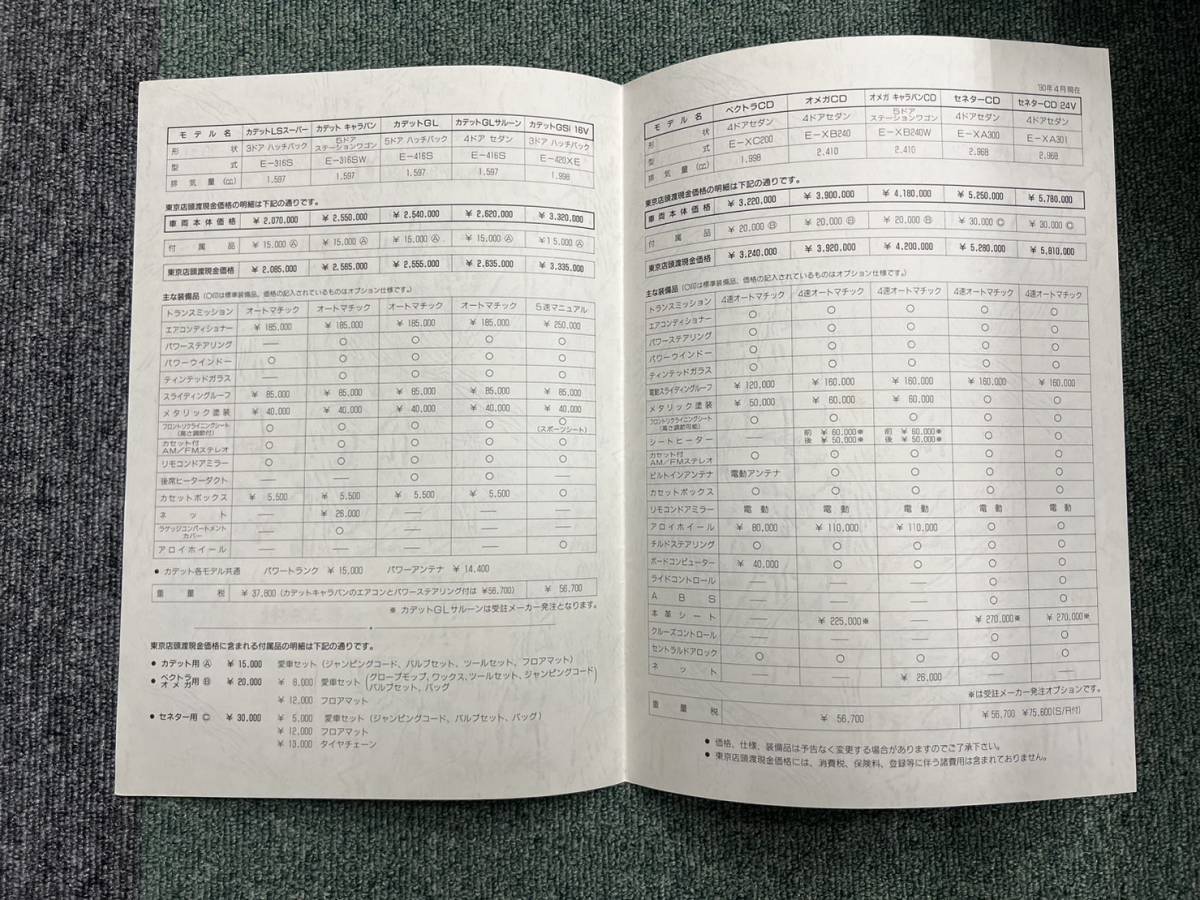 モデル名 カデットLSスーパー カデット キャラバン カデットGL カデットGLサルーン カデットGSi 16V
形状 3ドア ハッチバック 5ドア ステーションワゴン 5ドア ハッチバック 4ドア セダン 3ドア ハッチバック
型式 E-316S E-316SW E-416S E-416S E-420XE
排気量(cc) 1.597 1.597 1.597 1.597 1.998
東京店頭渡現金価格の明細は下記の通りです。
車両本体価格 ¥ 2.070.000 ¥ 2.550.000 ¥ 2.540.000 ¥ 2.620.000 ¥ 3.320.000
付属品 ¥ 15.000 Ⓐ ¥ 15.000 Ⓐ ¥ 15.000 Ⓐ ¥ 15.000 Ⓐ ¥15.000 Ⓐ
東京店頭渡現金価格 ¥ 2.085.000 ¥ 2.565.000 ¥ 2.555.000 ¥ 2.635.000 ¥ 3.335.000
主な装備品 (○印は標準装備品、価格の記入されているものはオプション仕様です。)
トランスミッション オートマチック オートマチック オートマチック オートマチック 5速マニュアル
エアコンディショナー ¥ 185.000 ¥ 185.000 ¥ 185.000 ¥ 185.000 ¥ 250.000
パワーステアリング — ○ ○ ○ ○
パワーウインドー ○ ○ ○ ○ ○
ティンテッドガラス — ○ ○ ○ ○
スライディングルーフ ¥ 85.000 ¥ 85.000 ¥ 85.000 ¥ 85.000 ¥ 85.000
メタリック塗装 ¥ 40.000 ¥ 40.000 ¥ 40.000 ¥ 40.000 ¥ 40.000
フロントリクライニングシート (高さ調節付) ○ ○ ○ ○ ○ (スポーツシート)
カセット付 AM/FMステレオ ○ ○ ○ ○ ○
リモコンドアミラー ○ ○ ○ ○ ○
後席ヒーターダクト — — ○ ○ —
カセットボックス ¥ 5.500 ¥ 5.500 ¥ 5.500 ¥ 5.500 ○
ネット — ¥ 26.000 — — —
ラゲッジコンパートメント カバー — ○ — — —
アロイホイール — — — — ○
● カデット各モデル共通 パワートランク ¥ 15,000 パワーアンテナ ¥ 14.400
重量税 ¥ 37.800 (カデットキャラバンのエアコンとパワーステアリング付は ¥56.700) ¥ 56.700
※ カデットGLサルーンは受註メーカー発注となります。
東京店頭渡現金価格に含まれる付属品の明細は下記の通りです。
● カデット用 Ⓐ ¥ 15.000 愛車セット (ジャンピングコード、バルブセット、ツールセット、フロアマット)
● ベクトラ オメガ用 Ⓑ ¥ 20.000 ¥ 8,000 愛車セット (グローブモップ、ワックス、ツールセット、ジャンピングコード
バルブセット、バッグ)
¥ 12.000 フロアマット
● セネター用 Ⓒ ¥ 30.000 ¥ 5.000 愛車セット (ジャンピングコード、バルブセット、バッグ)
¥ 12.000 フロアマット
¥ 13.000 タイヤチェーン
'90年4月現在
モデル名 ベクトラCD オメガCD オメガ キャラバンCD セネターCD セネターCD 24V
形状 4ドアセダン 4ドアセダン 5ドア ステーションワゴン 4ドアセダン 4ドアセダン
型式 E-XC200 E-XB240 E-XB240W E-XA300 E-XA301
排気量(cc) 1.998 2.410 2.410 2.968 2.968
東京店頭渡現金価格の明細は下記の通りです。
車両本体価格 ¥ 3.220.000 ¥ 3.900.000 ¥ 4.180.000 ¥ 5.250.000 ¥ 5.780.000
付属品 ¥ 20.000 Ⓑ ¥ 20,000 Ⓑ ¥ 20.000 Ⓑ ¥ 30.000 Ⓒ ¥ 30.000 Ⓒ
東京店頭渡現金価格 ¥ 3.240.000 ¥ 3.920.000 ¥ 4.200.000 ¥ 5.280.000 ¥ 5,810,000
主な装備品 (○印は標準装備品、価格の記入されているものはオプション仕様です。)
トランスミッション 4速オートマチック 4速オートマチック 4速オートマチック 4速オートマチック 4速オートマチック
エアコンディショナー ○ ○ ○ ○ ○
パワーステアリング ○ ○ ○ ○ ○
パワーウインドー ○ ○ ○ ○ ○
ティンテッドガラス ○ ○ ○ ○ ○
電動スライディングルーフ ¥ 120,000 ¥ 160.000 ¥ 160.000 ¥ 160.000 ¥ 160.000
メタリック塗装 ¥ 50,000 ¥ 60,000 ¥ 60,000 ○ ○
フロントリクライニングシート (高さ調節可能) ○ ○ ○ ○ ○
シートヒーター — 前 ¥ 60,000※ 後 ¥ 50.000※ 前 ¥ 60.000※ 後 ¥ 50.000※ ○ ○
カセット付 AM/FMステレオ ○ ○ ○ ○ ○
ビルトインアンテナ 電動アンテナ ○ ○ ○ ○
カセットボックス ○ ○ ○ ○ ○
リモコンドアミラー 電動 電動 電動 電動 電動
アロイホイール ¥ 80,000 ¥ 110,000 ¥ 110.000 ○ ○
チルドステアリング ○ ○ ○ ○ ○
ボードコンピューター ¥ 40,000 ○ ○ ○ ○
ライドコントロール — — — ○ ○
ABS — — — ○ ○
本革シート — ¥ 225.000※ — ¥ 270.000※ ¥ 270.000※
クルーズコントロール — — — ○ ○
セントラルドアロック ○ ○ ○ ○ ○
ネット — — ¥ 26.000 — —
※は受註メーカー発注オプションです。
重量税 ¥ 56.700 ¥56,700 ¥75.600(S/R付)
● 価格、仕様、装備品は予告なく変更する場合がありますのでご了承下さい。
● 東京店頭渡現金価格には、消費税、保険料、登録等に伴う諸費用は含まれておりません。